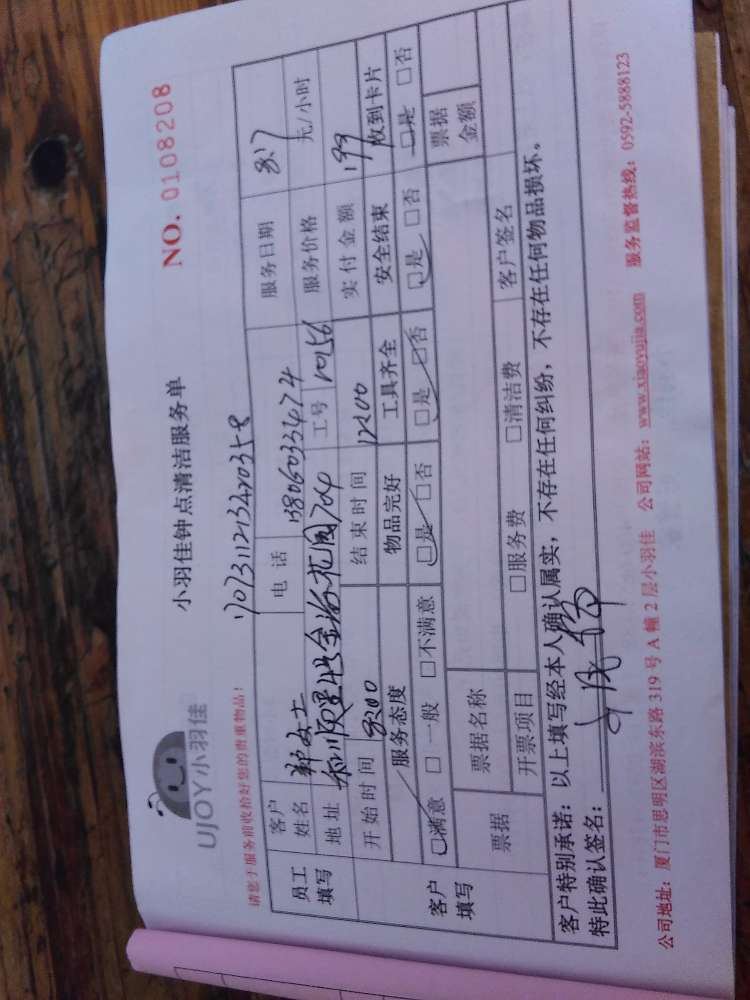 UJOY小羽佳
小羽佳钟点清洁服务单
NO. 0108208
请您于服务前收拾好您的贵重物品!
员工填写
客户姓名
女士
电话
服务日期 8.17
地址
工号 10156
服务价格
元/小时
开始时间 8:00
结束时间 12:00
实付金额 199
客户填写
服务态度 物品完好 工具齐全 安全结束 收到卡片
□满意 □一般 □不满意 □是 □否 □是 □否 □是 □否 □是 □否
票据
票据名称
票据金额
开票项目 □服务费 □清洁费 客户签名
客户特别承诺:以上填写经本人确认属实,不存在任何纠纷,不存在任何物品损坏。
特此确认签名:
公司地址:厦门市思明区湖滨东路 319 号 A 幢 2 层小羽佳 公司网站:www.xiaoyujia.com 服务监督热线:0592-5888123